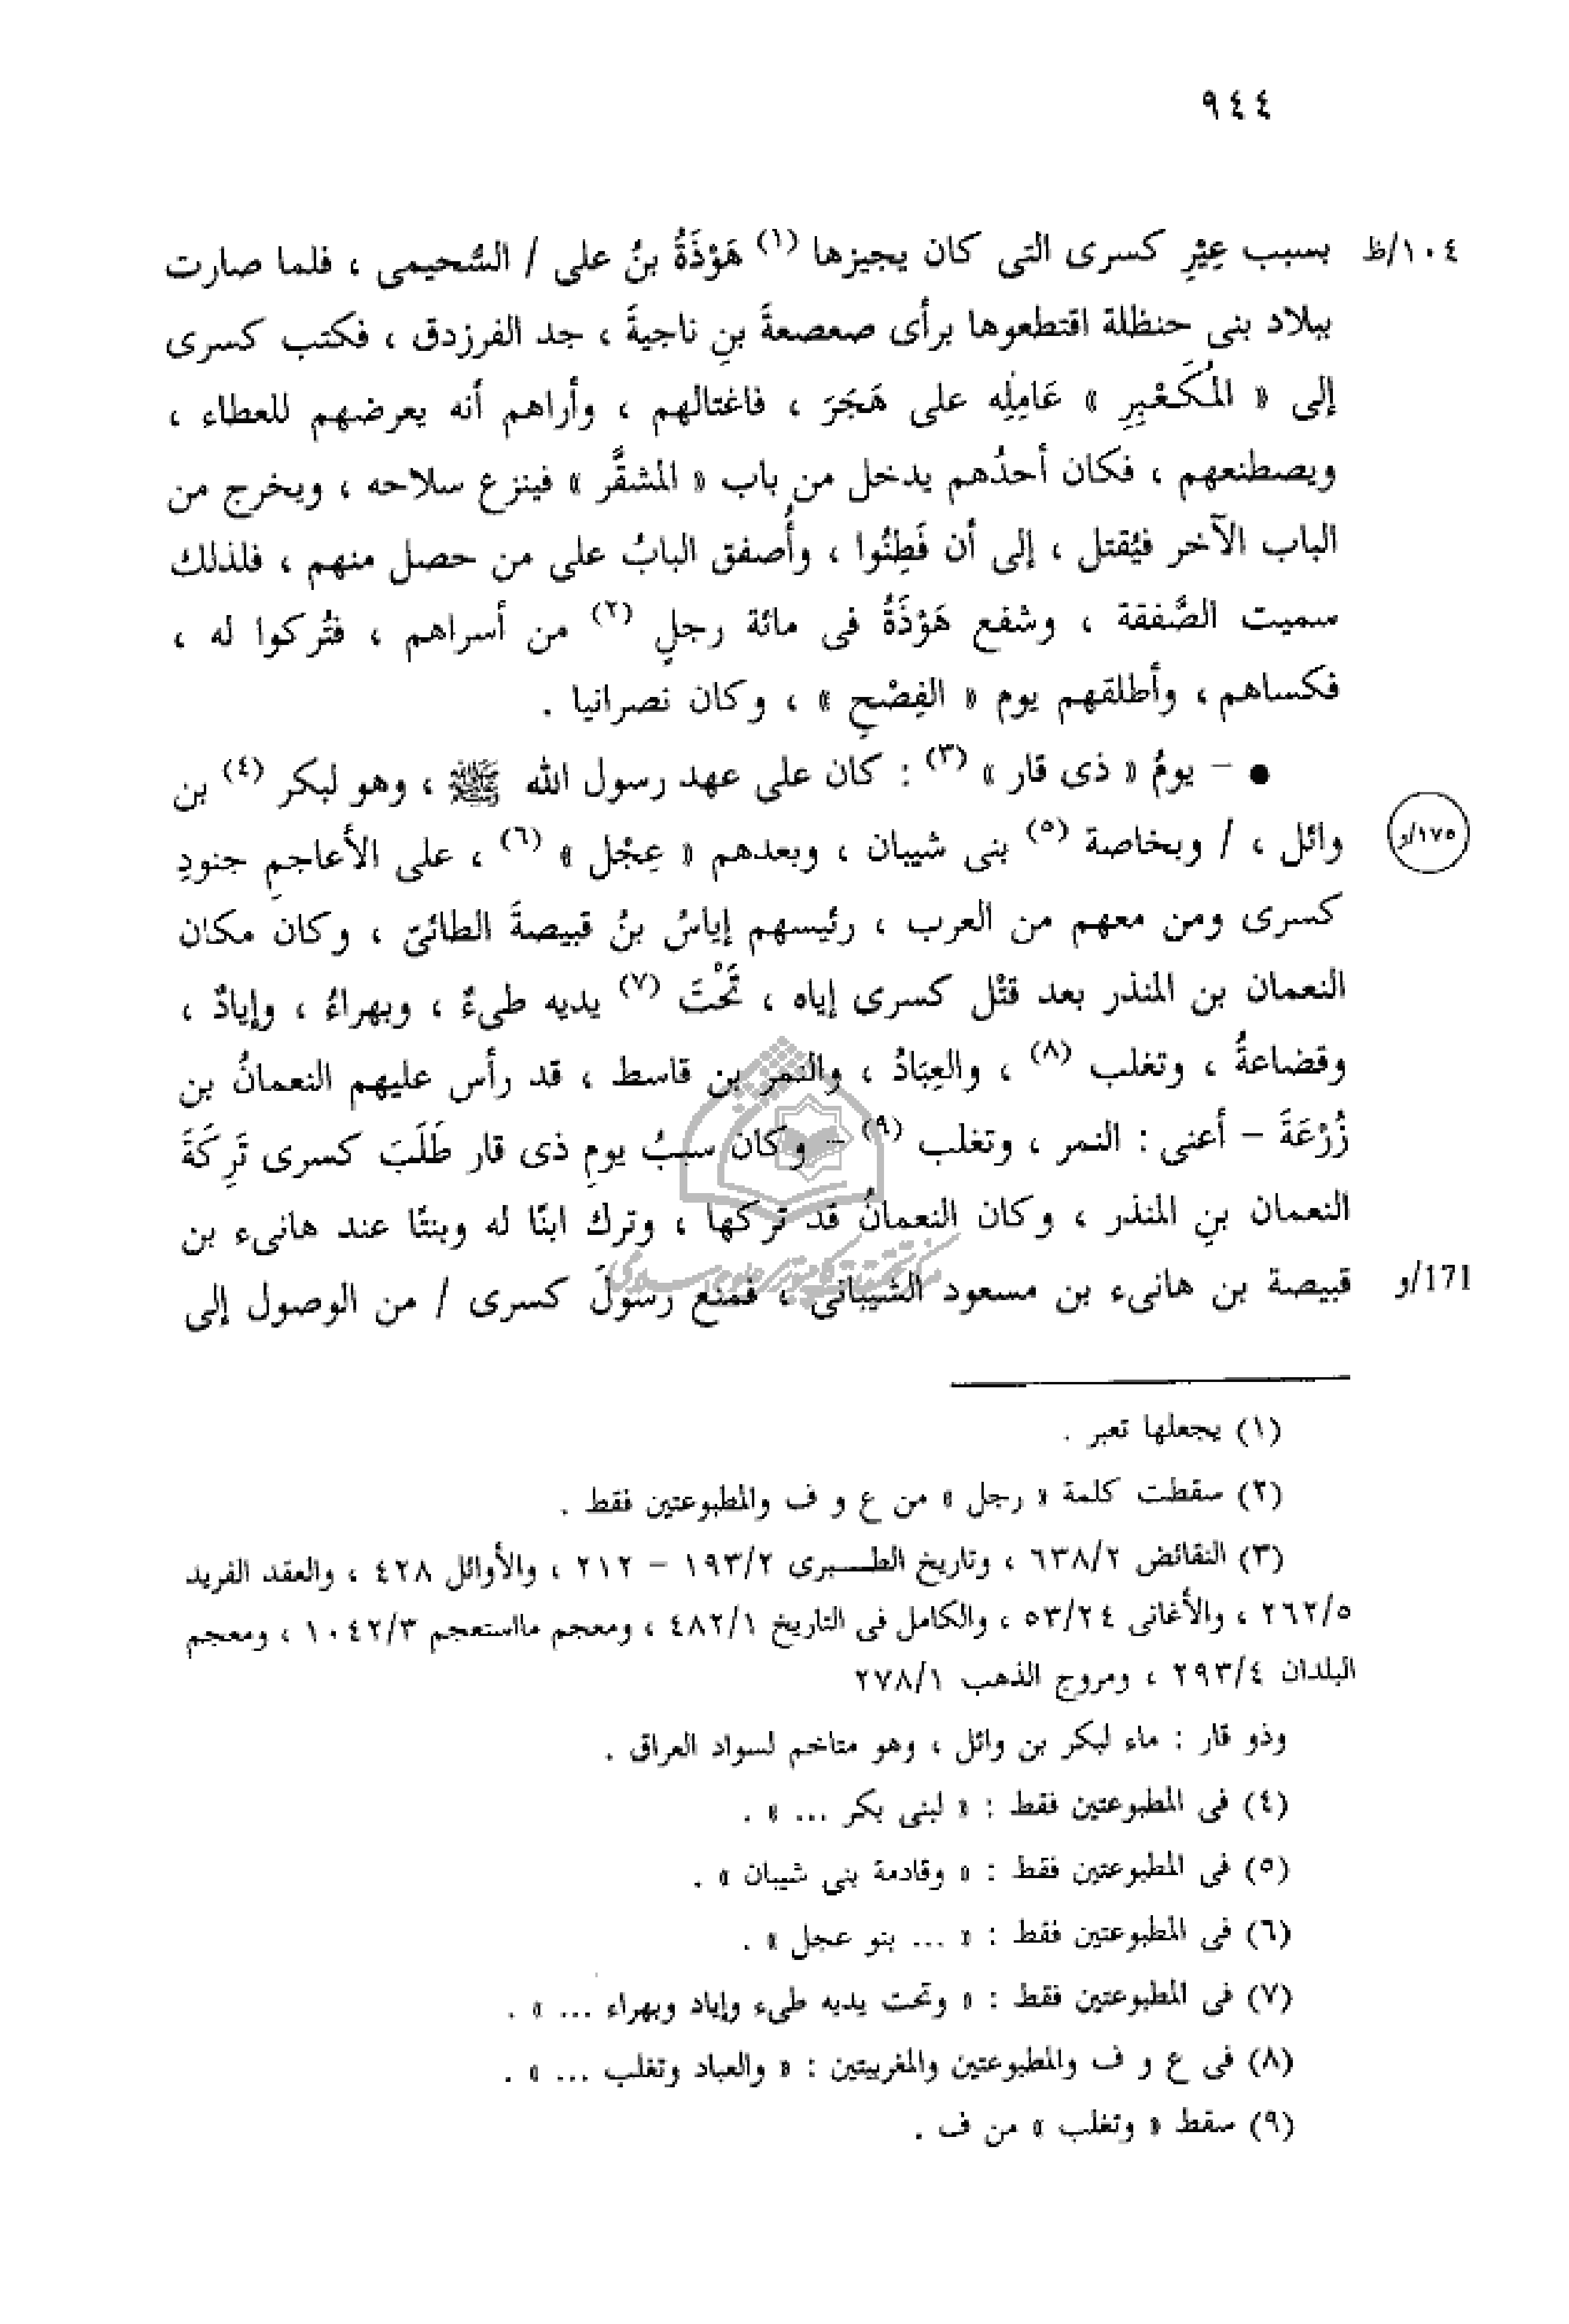 ٩٤٤
١٠٤/ظ بسبب عِيْرِ كسرى التى كان يجيزها (١) هَوْذَةُ بنُ على / السُّحيمى ، فلما صارت
ببلاد بنى حنظلة اقتطعوها برأى صعصعةَ بنِ ناجيةَ ، جد الفرزدق ، فكتب كسرى
إلى « المُكَعْبِرِ » عَامِلِه على هَجَرَ ، فاغتالهم ، وأراهم أنه يعرضهم للعطاء ،
ويصطنعهم ، فكان أحدُهم يدخل من باب « المشقَّر » فينزع سلاحه ، ويخرج من
الباب الآخر فيُقتل ، إلى أن فَطِنُوا ، وأُصفق البابُ على من حصل منهم ، فلذلك
سميت الصَّفقة ، وشفع هَوْذَةُ فى مائة رجلٍ (٢) من أسراهم ، فتُركوا له ،
فكساهم ، وأطلقهم يوم « الفِصْحِ » ، وكان نصرانيا .
● – يومُ « ذى قار » (٣) : كان على عهد رسول الله ﷺ ، وهو لبكر (٤) بن
١٧٥/و وائل ، / وبخاصة (٥) بنى شيبان ، وبعدهم « عِجْل » (٦) ، على الأعاجمِ جنودِ
كسرى ومن معهم من العرب ، رئيسهم إياسُ بنُ قبيصةَ الطائىّ ، وكان مكان
النعمان بن المنذر بعد قتْل كسرى إياه ، تَحْتَ (٧) يديه طىءٌ ، وبهراءُ ، وإيادٌ ،
وقضاعةُ ، وتغلب (٨) ، والعِبَادُ ، والنمر بن قاسط ، قد رأس عليهم النعمانُ بن
زُرْعَةَ – أعنى : النمر ، وتغلب (٩) – وكان سببُ يومِ ذى قار طَلَبَ كسرى تَرِكَةَ
النعمان بنِ المنذر ، وكان النعمانُ قد تركها ، وترك ابنًا له وبنتًا عند هانىء بن
171/و قبيصة بن هانىء بن مسعود الشيبانى ، فمنع رسولَ كسرى / من الوصول إلى
(١) يجعلها تعبر .
(٢) سقطت كلمة « رجل » من ع و ف والمطبوعتين فقط .
(٣) النقائض ٦٣٨/٢ ، وتاريخ الطبرى ١٩٣/٢ – ٢١٢ ، والأوائل ٤٢٨ ، والعقد الفريد
٢٦٢/٥ ، والأغانى ٥٣/٢٤ ، والكامل فى التاريخ ٤٨٢/١ ، ومعجم مااستعجم ١٠٤٢/٣ ، ومعجم
البلدان ٢٩٣/٤ ، ومروج الذهب ٢٧٨/١
وذو قار : ماء لبكر بن وائل ، وهو متاخم لسواد العراق .
(٤) فى المطبوعتين فقط : « لبنى بكر ... » .
(٥) فى المطبوعتين فقط : « وقادمة بنى شيبان » .
(٦) فى المطبوعتين فقط : « ... بنو عجل » .
(٧) فى المطبوعتين فقط : « وتحت يديه طىء وإياد وبهراء ... » .
(٨) فى ع و ف والمطبوعتين والمغربيتين : « والعباد وتغلب ... » .
(٩) سقط « وتغلب » من ف .